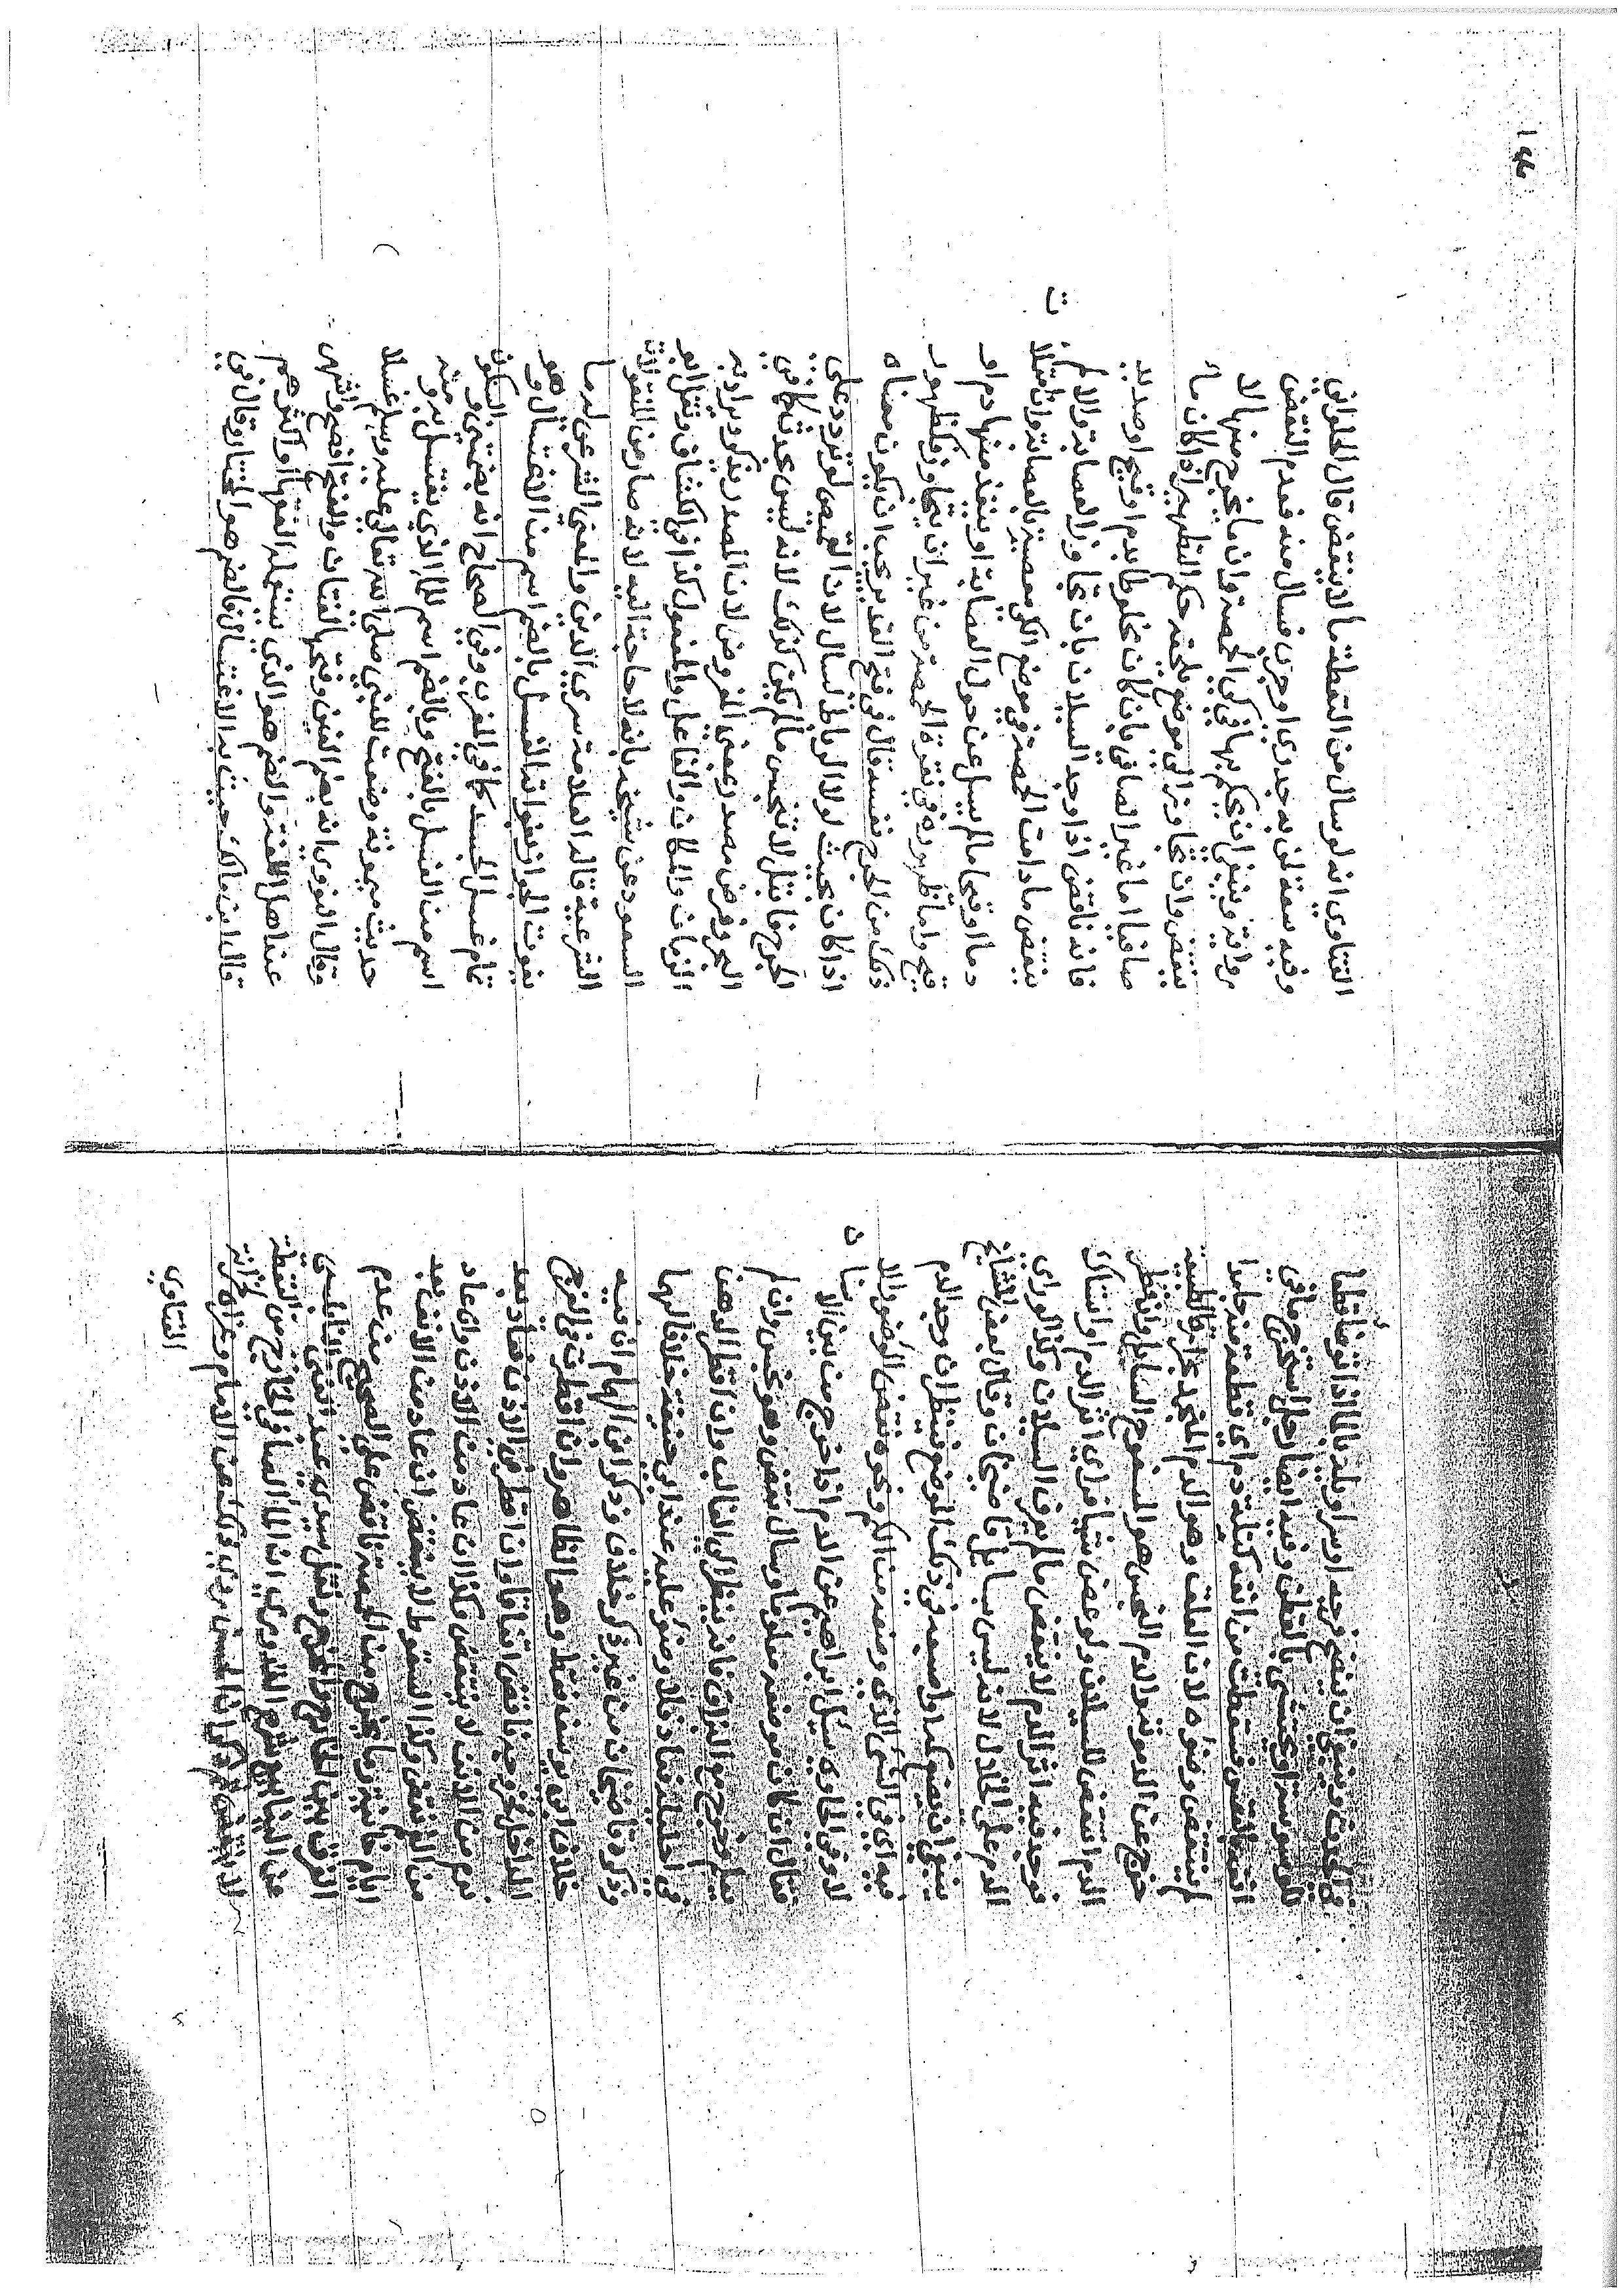 في الحدث وينبغي ان ينضح فرجه وسراويله بالماء اذا توضأ قطعا
للوسوسة او يحتشي بالقطن وفيه ايضا رجل استخرج ما في
انفه بنفس فسقطت من انفه كتلة دم اي قطعة منه جامدا
لم ينتقض وضوءه لان العلق وهو الدم المنجمد بحرارة الطبيعة
خرج عن الدموية والدم النجس هو المسفوح السايل وان قطر
الدم انتقض للسيلان ولو عض شيا فراي اثر الدم او استاك
فوجد فيه اثر الدم لا ينتقض ما لم يعرف السيلان وكذا لو راى
الدم على الخلال لانه ليس بسايل قاضيخان وقال بعض المشايخ
ينبغي ان يضع كمه او اصبعه في ذلك الموضع فينظر ان وجد الدم
فيه اي في الشي الذي وضعه من الكم ونحوه نقض الوضوء والا
لا وفي الحاوي سئل ابراهيم عن الدم اذا خرج من بين الاسنان
فقال ان كان موضعه معلوما وسال ينقض وهو نجس وان لم
يعلم وخرج مع البزاق فانه ينظر الى الغالب وان اقطر الدهن
في احليله فعاد فلا وضوء عليه عند ابي حنيفة خلافا لهما
وذكر قاضيخان من غير ذكر خلاف وذكر ابن الهمام ان فيه
خلاف ابي يوسف فقط وهو الظاهر وان اقطرت في الفرج
الداخل وخرج ناقض اتفاقا وان اقطر في الاذن فعاد بعد
يوم من الانف لا ينقض وكذا ان عاد من الاذن وان عاد
من الفم نقض وكذا السعوط لا ينقض ان عاد من الانف بعد
ايام خانية وما يخرج من الحمصة ناقض على الصحيح من عدم
الفرق بين الخارج والمخرج ونقل سيدي عبد الغني النابلسي
عن الينابيع شرح القدوري ان الماء الصافي الخارج من النفطة
لا ينقض الحسن عن الامام وعزاه لخزانة
الفتاوي
١٣
الفتاوي انه لو سال من النفطة ما لا ينقض قال الحلواني
وفيه سعة لمن به جدري او جرب فسال منه فعدم النقض
رواية وينبغي ان يحكم بها في كي الحمصة وان ما يخرج منها لا
ينقض وان تجاوز الى موضع يلحقه حكم التطهير اذا كان ماء
صافيا اما غير الصافي بان كان مخلوطا بدم او قيح او صديد
فانه ناقض اذا وجد السيلان بان تجاوز العصابة والا لم
ينقض ما دامت الحمصة في موضع الكي معصبة بالعصابة وان امتلات
دما او قيحا ما لم يسل عن حول العصابة او ينفذ منها دم او
قيح واما ظهوره في نقرة الحمصة من غير ان يتجاوز فكظهور
ذلك من الجرح نفسه قال في فتح القدير يجب ان يكون معناه
اذا كان بحيث لولا الرباط لسال لان القميص لو تردد على
الجرح فابتل لا تنجس ما لم يكن كذلك لانه ليس بحدث كما في
البحر وفرض مصدر بمعنى المفروض لان المصدر يذكر ويراد به
الزمان والمكان والفاعل والمفعول كذا في الكشاف ونقل ابو
السعود عن شيخه بانه لا حاجة اليه لانه صار من المنقولات
الشرعية قال العلامة سري الدين والمعنى الشرعي لم ما
يفوت الجواز بفواته الغسل بالضم اسم من الاغتسال وهو
تمام غسل الجسد كما في المغرب وفي الصحاح انه بضمتين والسكون
اسم من الغسل بالفتح وبالضم اسم للماء الذي يغتسل به ومنه
حديث ميمونة وضعت للنبي صلى الله تعالى عليه وسلم غسلا
وقال النووي انه بضم الغين وفتحها لغتان والفتح افصح واشهر
عند اهل اللغة والضم هو الذي يستعمله الفقهاء او اكثرهم
قال ابن مالك حيث يراد الاغتسال فالضم هو المختار وقال في